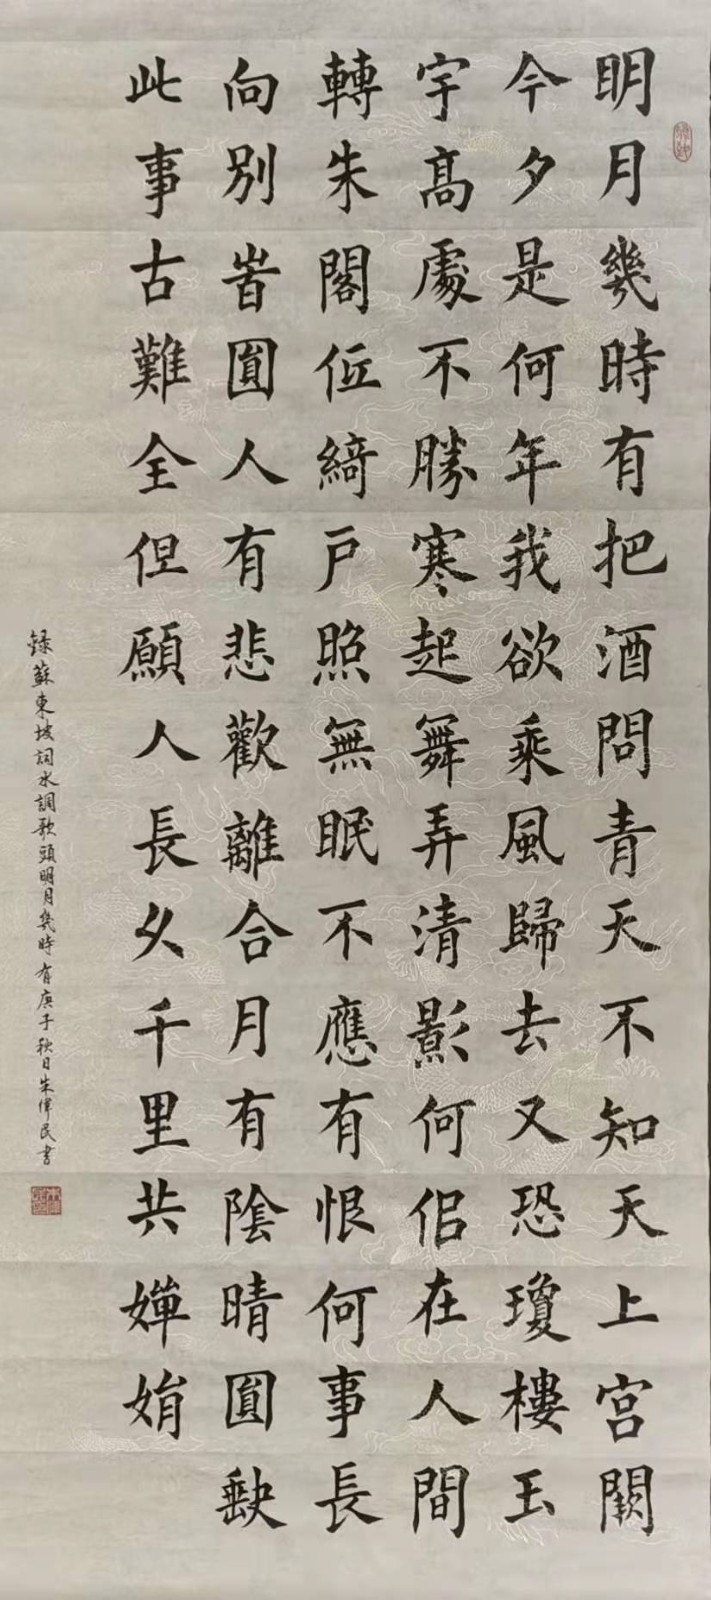 明月幾時有把酒問青天不知天上宮闕
今夕是何年我欲乘風歸去又恐瓊樓玉
宇高處不勝寒起舞弄清影何佀在人間
轉朱閣低綺戶照無眠不應有恨何事長
向別峕圓人有悲歡離合月有陰晴圓缺
此事古難全但願人長久千里共嬋娟
録蘇東坡詞水調歌頭明月幾時有庚子秋日朱偉民書